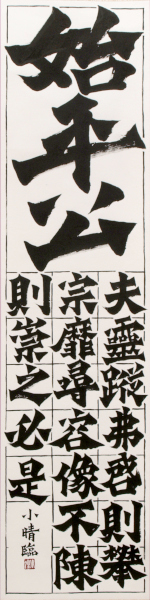 始平公
夫靈蹤弗啓則攀
宗靡尋容像不陳
則崇之必是
小晴臨